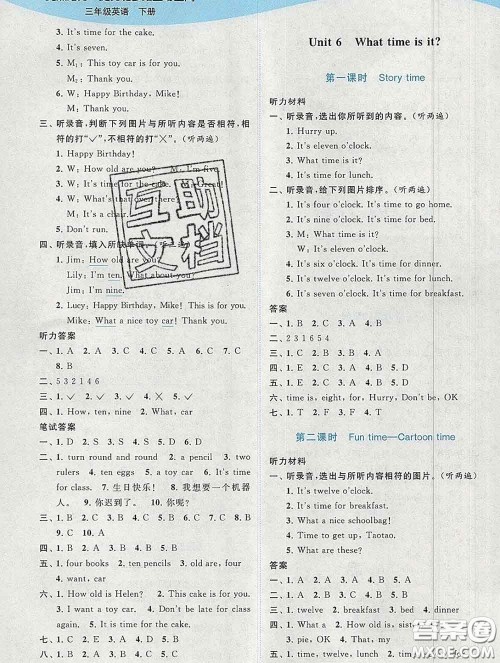 三年级英语 下册
3. It's time for the cake.
4. It's seven.
5. M₁: This toy car is for you.
M₂: Thank you.
6. W: Happy Birthday, Mike!
M: Thank you.
三、听录音,判断下列图片与所听内容是否相符,相
符的打“✓”,不相符的打“✕”。(听两遍)
1. Happy Birthday!
2. W: How old are you? M: I'm five.
3. W: It's time for the cake. M: Great!
4. W: What's that over there?
M: It's a chair.
5. Don't run.
四、听录音,填入所缺单词。(听两遍)
1. Jim: How old are you?
Lily: I'm ten. What about you?
Jim: I'm nine.
2. Lucy: Happy Birthday, Mike! This is for you.
Mike: What a nice toy car! Thank you.
听力答案
一、1. A 2. A 3. A 4. B 5. A 6. B
二、5 3 2 1 4 6
三、1. ✓ 2. ✕ 3. ✓ 4. ✓ 5. ✕
四、1. How, ten, nine 2. What, car
笔试答案
一、1. D 2. S 3. S 4. D 5. S
二、1. turn round and round 2. a pencil 3. two
rulers 4. ten eggs 5. a toy car 6. It's time
for class. 7. 生日快乐! 8. 我想要一个机器
人。 9. 你迟到了。 10. 你呢?
三、1. B 2. C 3. C 4. A 5. A 6. B 7. C 8. B
9. C 10. A
四、1. B 2. D 3. A 4. E 5. C
五、1. four books 2. ten pencils 3. old, are, four
4. want, car
六、1. How old is Helen? 2. This cake is for you.
3. I want a toy car. 4. Don't be late for class
again. 5. It's time to go to bed.
七、1. B 2. C 3. B 4. B 5. C
八、1. B 2. C 3. C 4. A 5. C
Unit 6 What time is it?
第一课时 Story time
听力材料
一、听录音,选出你所听到的内容。(听两遍)
1. Hurry up.
2. It's eleven o'clock.
3. What time is it?
4. It's time for lunch.
二、听录音,给下列图片排序。(听两遍)
1. It's four o'clock. It's time to go home.
2. It's nine o'clock. It's time for bed.
3. M: What time is it?
W: It's eleven o'clock.
4. It's six o'clock. It's time for dinner.
5. It's twelve o'clock. It's time for lunch.
6. It's seven o'clock. It's time for breakfast.
答案
一、1. B 2. A 3. A 4. B
二、2 3 1 6 5 4
三、1. B 2. C 3. C 4. B 5. A
四、1. B 2. A 3. A 4. B 5. B
五、1. C 2. A 3. E 4. B 5. D
六、time is, eight, for, Hurry, Don't be, OK
七、1. T 2. F 3. F 4. T
第二课时 Fun time—Cartoon time
听力材料
一、听录音,选出与所听内容相符的图片。(听两遍)
1. It's twelve o'clock.
2. It's time for breakfast.
3. What a nice schoolbag!
4. Time to get up, Taotao.
5. What are these?
答案
一、1. A 2. A 3. B 4. B 5. B
三、1. twelve 2. dinner 3. time, breakfast
四、1. What a 2. How old is, sister, is
3. pie, OK 4. What time, time
五、1. D 2. C 3. A 4. B
互助
文档